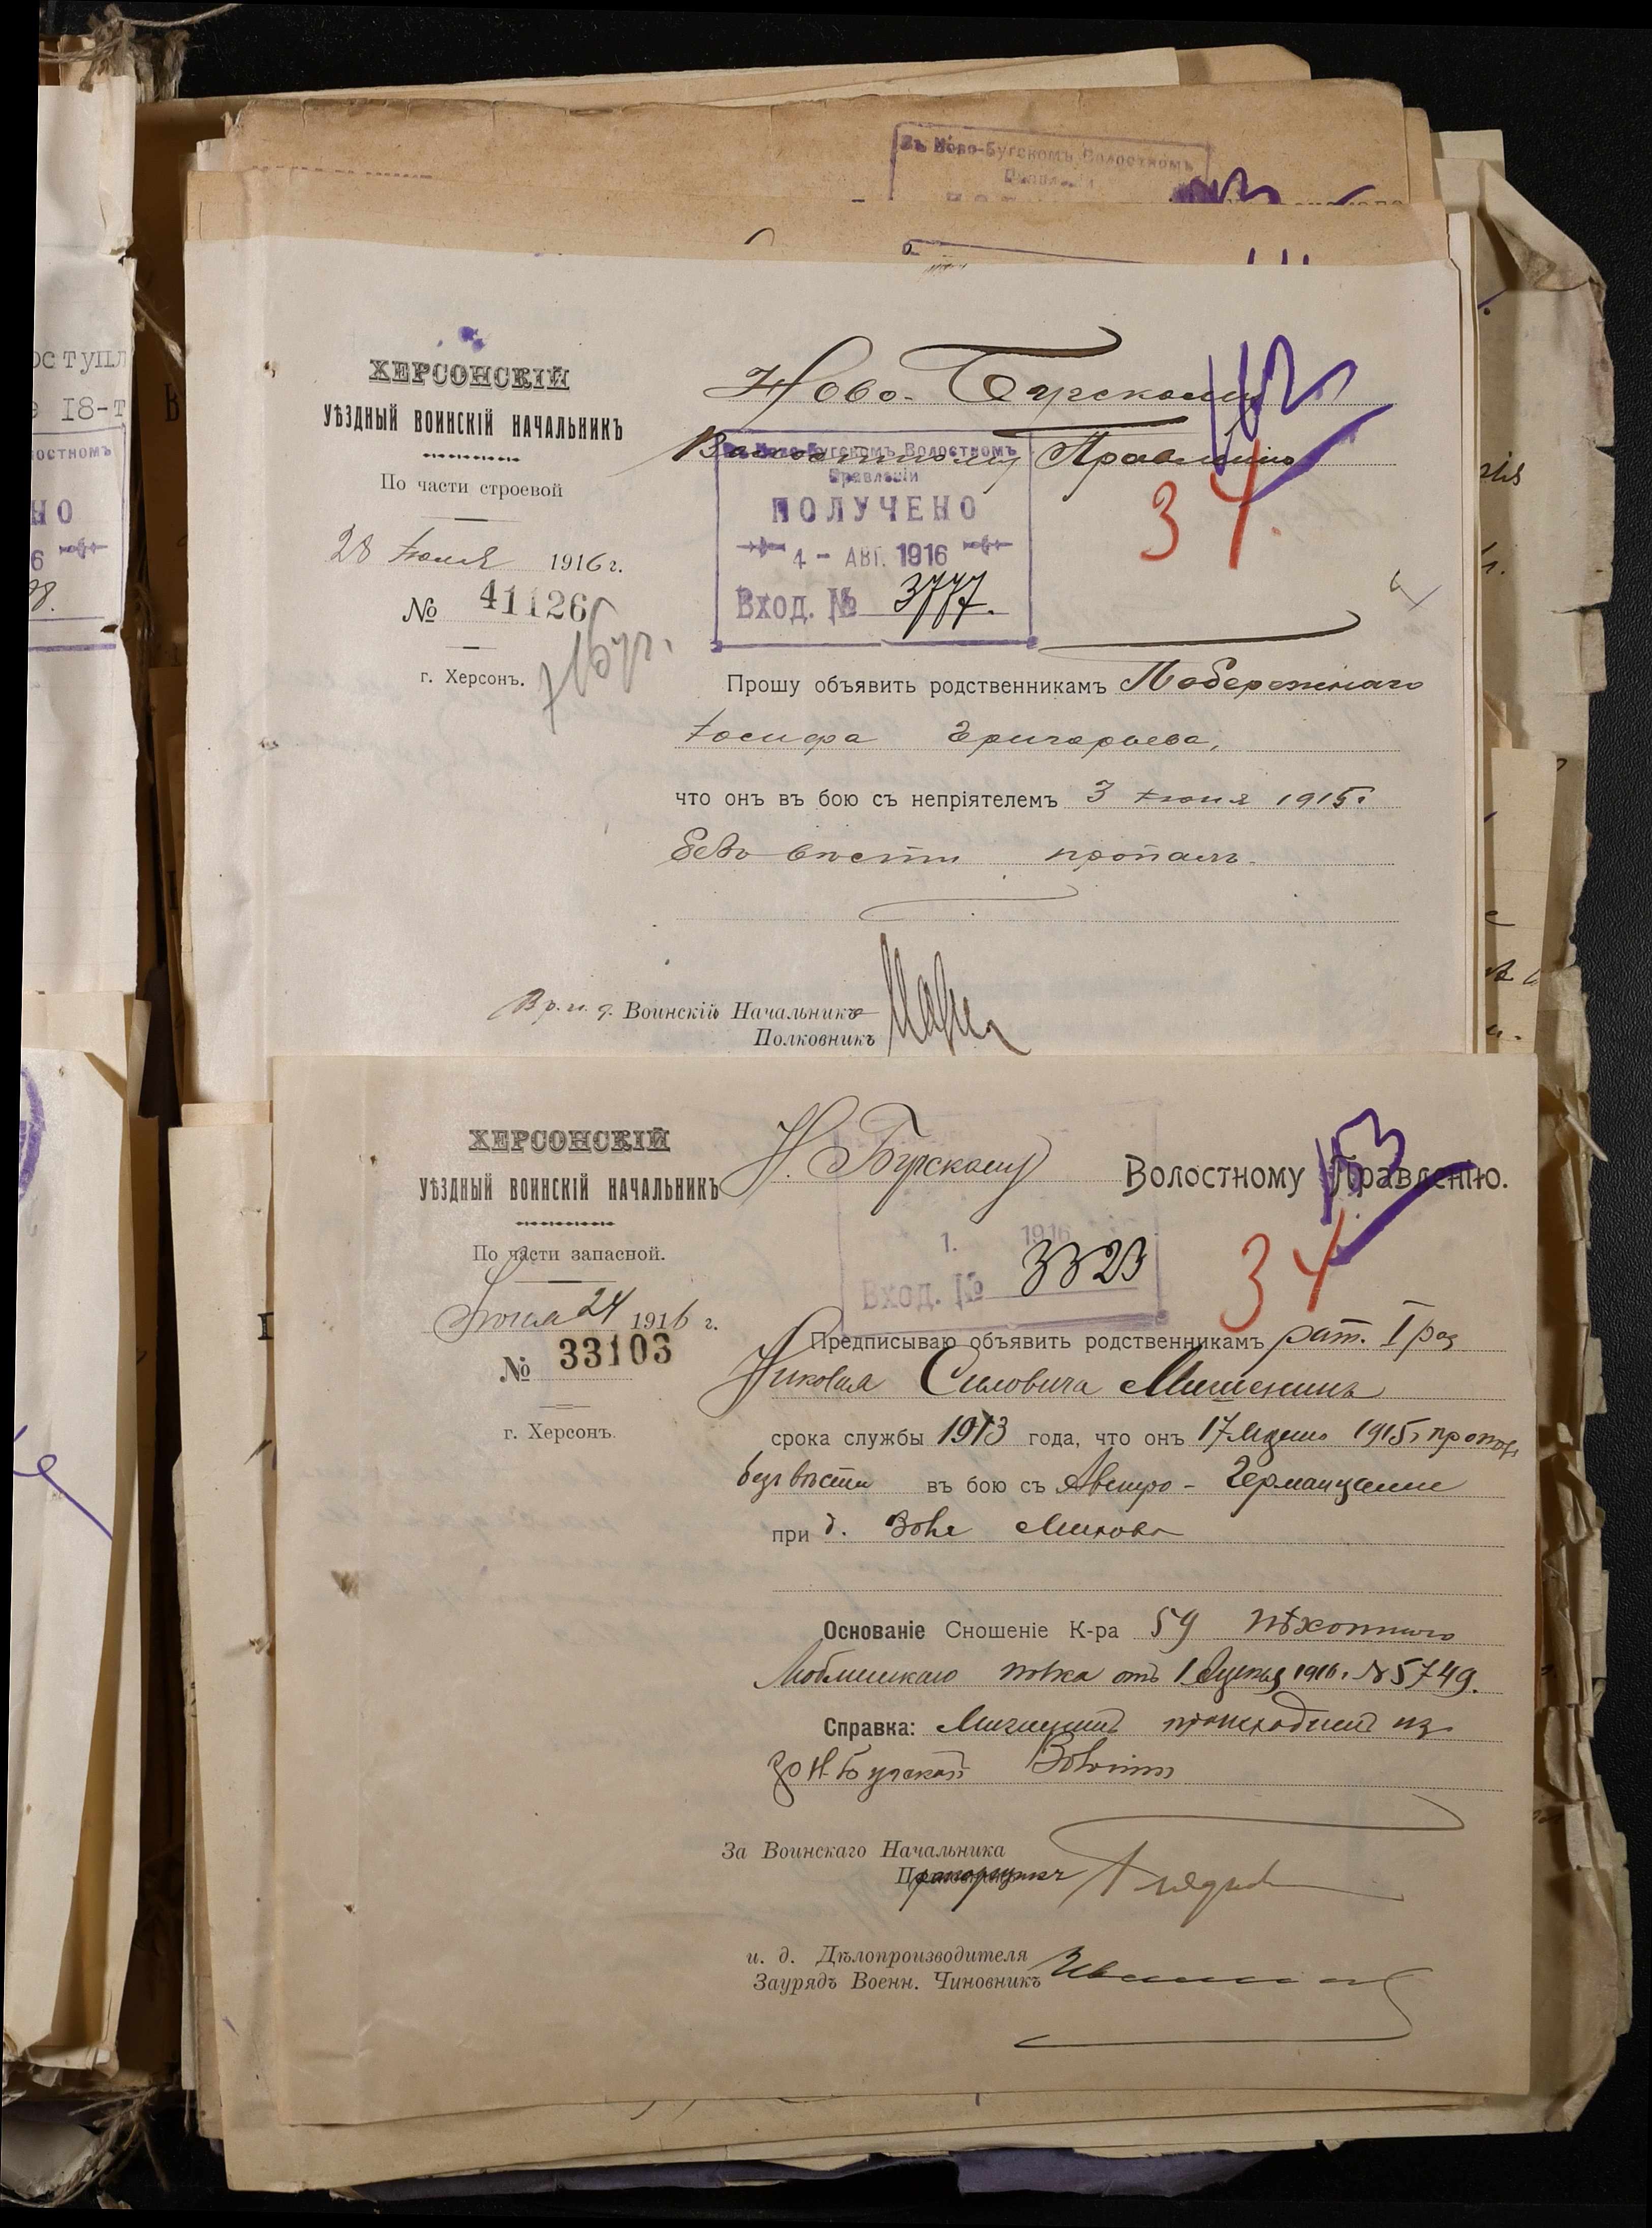 Въ Ново-Бугскомъ Волостномъ
оступл
е 18-т
остномъ
НО
6
ХЕРСОНСКІЙ
УѢЗДНЫЙ ВОИНСКІЙ НАЧАЛЬНИКЪ
По части строевой
28 Іюля 1916 г.
№ 41126
г. Херсонъ.
Ново-Бугскому
Волостному Правленію
112
34.
Въ Ново-Бугскомъ Волостномъ
Правленіи
ПОЛУЧЕНО
4 - АВГ. 1916
Вход. № 3777.
Прошу объявить родственникамъ Побережнаго
Іосифа Григорьева,
что онъ въ бою съ непріятелемъ 3 Іюня 1915г.
безъ вѣсти пропалъ.
Вр. и. д. Воинскій Начальникъ
Полковникъ
ХЕРСОНСКІЙ
УѢЗДНЫЙ ВОИНСКІЙ НАЧАЛЬНИКЪ
По части запасной.
24 1916 г.
№ 33103
г. Херсонъ.
Н. Бугскому Волостному Правленію.
113
34
1. 1916
Вход. № 3323
Предписываю объявить родственникамъ рат. I раз
Николая Силовича
срока службы 1913 года, что онъ 17 1915г. пропалъ
безъ вѣсти въ бою съ Австро-Германцами
при д. Воля
Основаніе Сношеніе К-ра 59 пѣхотнаго
Люблинскаго полка отъ 1 1916г. № 5749.
Справка: происходитъ из
Н-Бугской Волости
За Воинскаго Начальника
Прапорщикъ
и. д. Дѣлопроизводителя
Заурядъ Военн. Чиновникъ